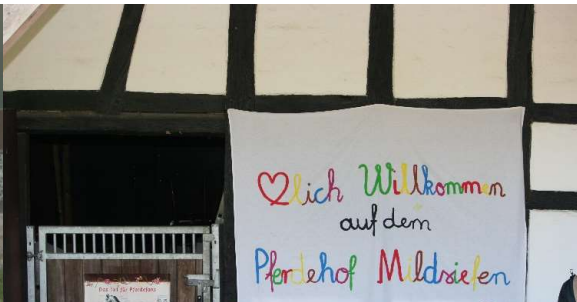 ♡lich Willkommen
auf dem
Pferdehof Mildsiefen